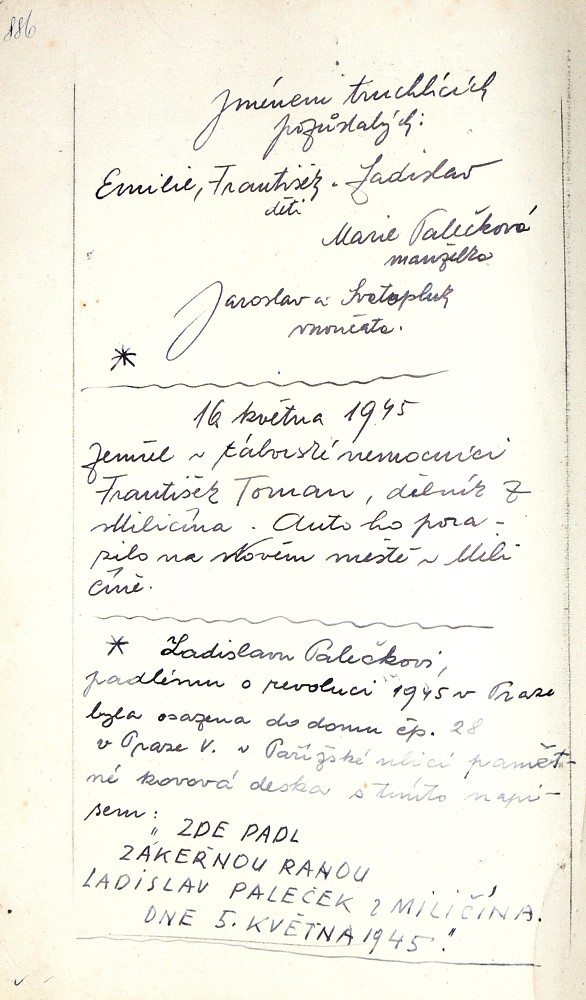 886
Jménem truchlících
pozůstalých:
Emilie, František, Ladislav
děti
Marie Palečková
manželka
Jaroslav a Svatopluk
vnoučata.
*
16 května 1945
zemřel v táborské nemocnici
František Toman, dělník z
Miličína. Auto ho pora-
zilo na Novém městě v Mili
číně.
* Ladislavu Palečkovi,
padlému o revoluci 1945 v Praze
byla osazena do domu čp. 28
v Praze V. v Pařížské ulici pamět-
ně kovová deska s tímto nápi-
sem:
" ZDE PADL
ZÁKEŘNOU RANOU
LADISLAV PALEČEK z MILIČÍNA.
DNE 5. KVĚTNA 1945."